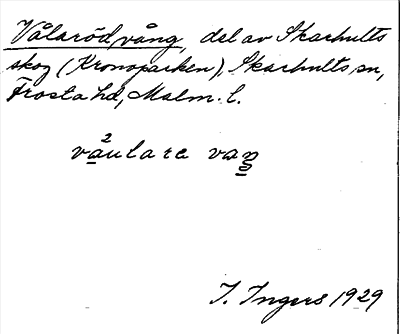 Vålaröd vång, del av Skarhults
skog (Kronoparken), Skarhults sn,
Frosta hd, Malm. l.
vå²ulare vaŋ
I. Ingers 1929